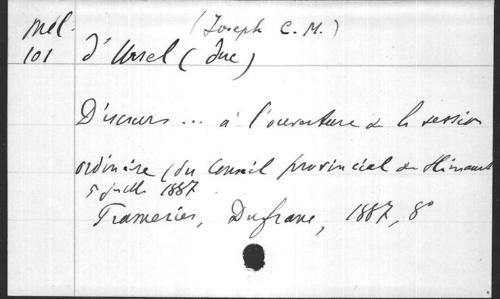 Mél. (Joseph C. M.)
101 d'Ursel (duc)
Discours ... à l'ouverture de la session
ordinaire (du Conseil provincial du Hainaut
5 juill. 1887.
Frameries, Dufrane, 1887, 8°